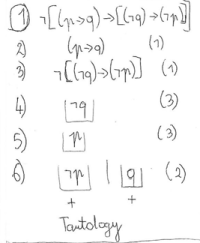 1) ¬[(p→q)→[(¬q)→(¬p)]]
2) (p→q) (1)
3) ¬[(¬q)→(¬p)] (1)
4) ¬q (3)
5) p (3)
6) ¬p | q (2)
+ +
Tautology